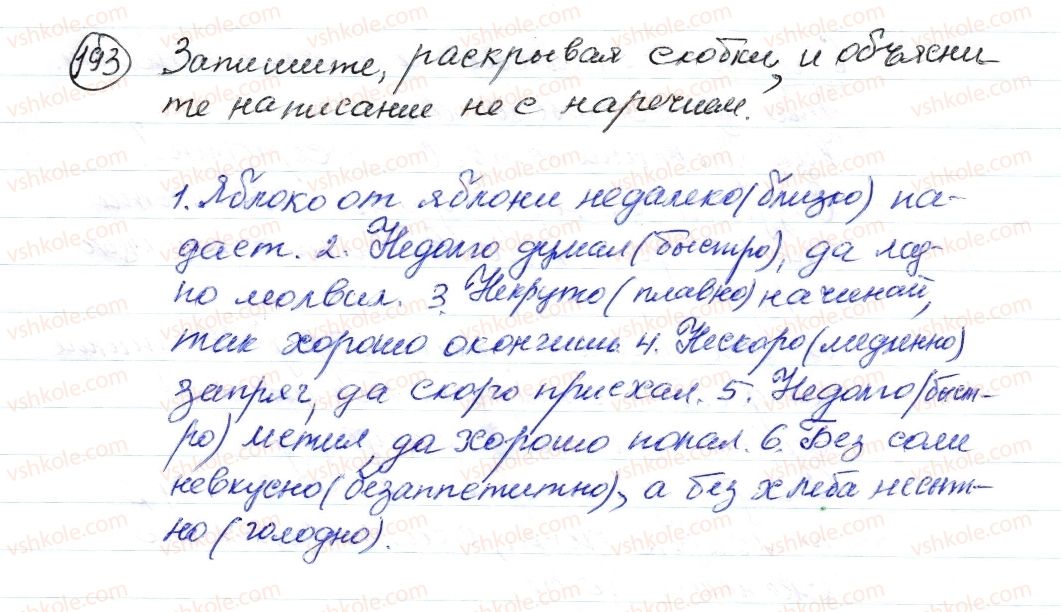 193 Запишите, раскрывая скобки, и объясни-
те написание не с наречием.
1. Яблоко от яблони недалеко (близко) па-
дает. 2. Недолго думал (быстро), да лад-
но молвил. 3. Некруто (плавно) начинай,
так хорошо окончишь. 4. Нескоро (медленно)
запряг, да скоро приехал. 5. Недолго (быст-
ро) метил, да хорошо попал. 6. Без соли
невкусно (безаппетитно), а без хлеба несыт-
но (голодно).
vshkole.com